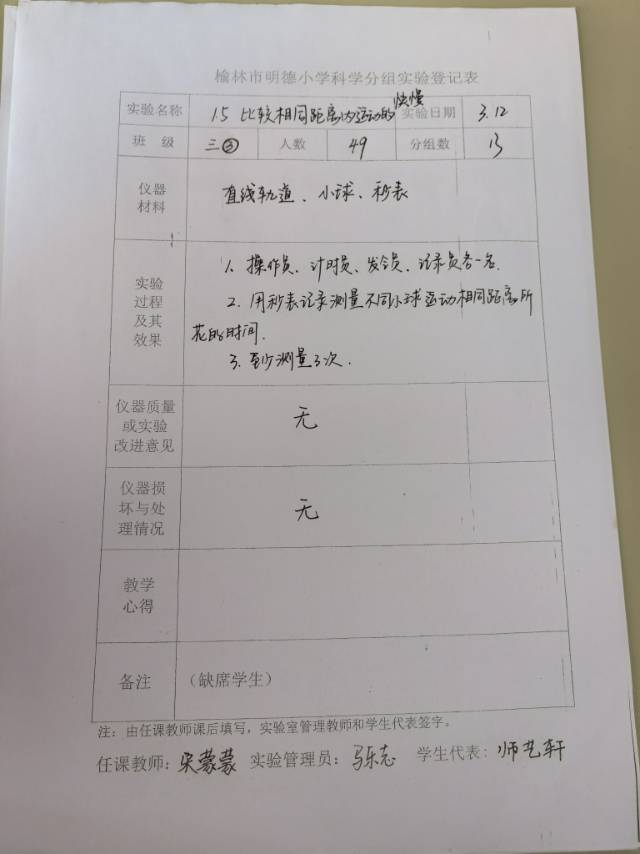 榆林市明德小学科学分组实验登记表
实验名称 1.5 比较相同距离内运动的快慢 实验日期 3.12
班 级 三② 人数 49 分组数 13
仪器材料 直线轨道、小球、秒表
实验过程及其效果
1、操作员、计时员、发令员、记录员各一名.
2、用秒表记录测量不同小球运动相同距离所
花的时间.
3、至少测量3次.
仪器质量或实验改进意见 无
仪器损坏与处理情况 无
教学心得
备注 (缺席学生)
注：由任课教师课后填写，实验室管理教师和学生代表签字。
任课教师：宋蒙蒙 实验管理员：马乐志 学生代表：师艺轩